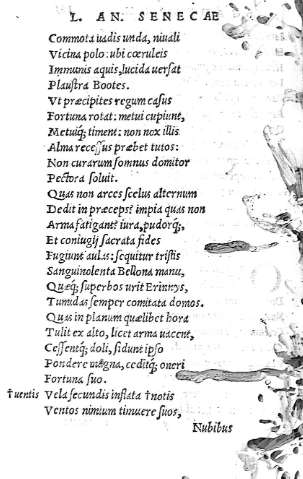 L. AN. SENECAE
Commota uadis unda, niuali
Vicina polo: ubi cœruleis
Immunis aquis, lucida uersat
Plaustra Bootes.
Vt præcipites regum casus
Fortuna rotat: metui cupiunt,
Metuiq; timent: non nox illis
Alma recessus præbet tutos:
Non curarum somnus domitor
Pectora soluit.
Quas non arces scelus alternum
Dedit in præceps? impia quas non
Arma fatigant? iura, pudorq;,
Et coniugij sacrata fides
Fugiunt aulas: sequitur tristis
Sanguinolenta Bellona manu,
Quæq; superbos urit Erinnys,
Tumidas semper comitata domos.
Quas in planum quælibet hora
Tulit ex alto, licet arma uacent,
Cessentq; doli, sidunt ipso
Pondere magna, ceditq; oneri
Fortuna suo.
†uentis Vela secundis inflata †notis
Ventos nimium timuere suos,
Nubibus